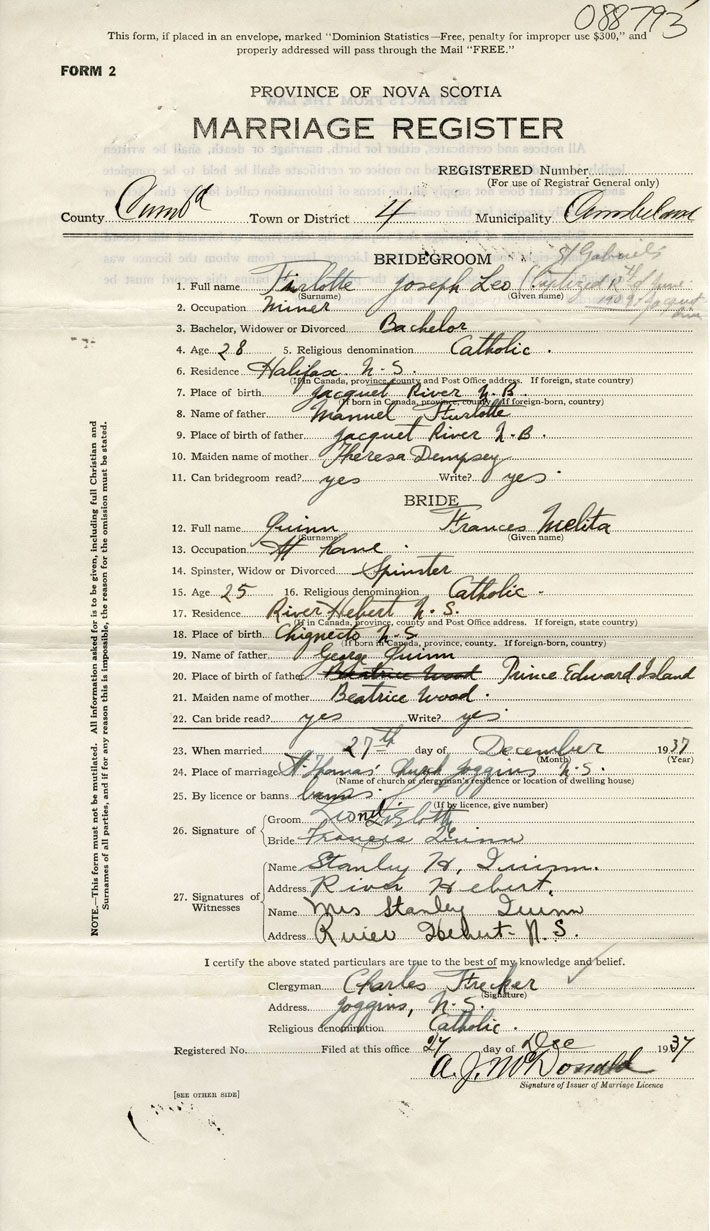 088793
This form, if placed in an envelope, marked "Dominion Statistics—Free, penalty for improper use $300," and
properly addressed will pass through the Mail "FREE."
FORM 2
PROVINCE OF NOVA SCOTIA
MARRIAGE REGISTER
REGISTERED Number
(For use of Registrar General only)
County Cumb'd Town or District 4 Municipality Cumberland
BRIDEGROOM St Gabriel's
1. Full name Furlotte Joseph Leo (Baptized 12th of June
(Surname) (Given name) 1909, Jacquet
2. Occupation Miner River
3. Bachelor, Widower or Divorced Bachelor
4. Age 28 5. Religious denomination Catholic.
6. Residence Halifax N.S.
(If in Canada, province, county and Post Office address. If foreign, state country)
7. Place of birth Jacquet River N.B.
(If born in Canada, province, county. If foreign-born, country)
8. Name of father Manuel Furlotte
9. Place of birth of father Jacquet River N.B.
10. Maiden name of mother Theresa Dempsey
11. Can bridegroom read? yes Write? yes.
BRIDE
12. Full name Quinn Frances Melita
(Surname) (Given name)
13. Occupation At home.
14. Spinster, Widow or Divorced Spinster
15. Age 25 16. Religious denomination Catholic.
17. Residence River Hebert N.S.
(If in Canada, province, county and Post Office address. If foreign, state country)
18. Place of birth Chignecto N.S.
(If born in Canada, province, county. If foreign-born, country)
19. Name of father George Quinn
20. Place of birth of father Beatrice Wood Prince Edward Island
21. Maiden name of mother Beatrice Wood.
22. Can bride read? yes Write? yes.
23. When married 27th day of December 1937
(Month) (Year)
24. Place of marriage St Thomas' Church Joggins N.S.
(Name of church or clergyman's residence or location of dwelling house)
25. By licence or banns banns.
(If by licence, give number)
26. Signature of
Groom
Bride Francis Quinn
27. Signatures of Witnesses
Name Stanley H. Quinn.
Address River Hebert.
Name Mrs Stanley Quinn
Address River Hebert N.S.
I certify the above stated particulars are true to the best of my knowledge and belief.
Clergyman Charles Frecker
(Signature)
Address Joggins, N.S.
Religious denomination Catholic.
Registered No. Filed at this office 27 day of Dec 1937
A. J. McDonald
Signature of Issuer of Marriage Licence
[SEE OTHER SIDE]
NOTE.—This form must not be mutilated. All information asked for is to be given, including full Christian and
Surnames of all parties, and if for any reason this is impossible, the reason for the omission must be stated.